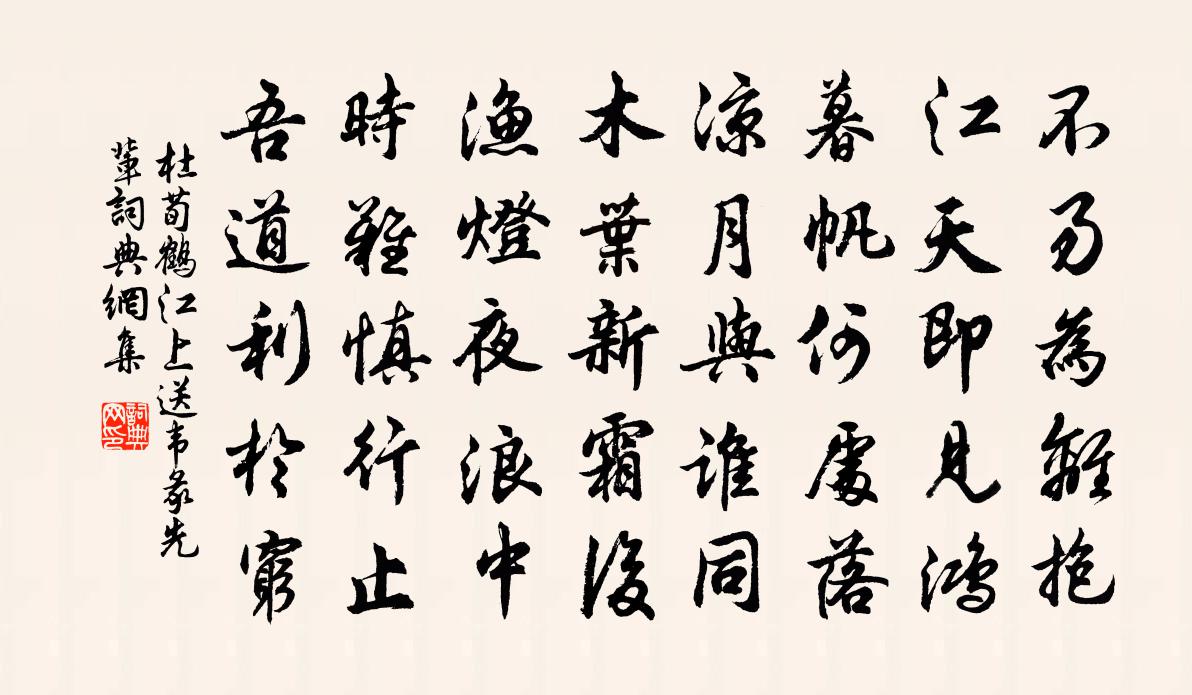 不易為離抱
江天即見鴻
暮帆何處落
涼月與誰同
木葉新霜後
漁燈夜浪中
時難慎行止
吾道利於窮
杜荀鶴江上送韋彖先
輩詞典網集
詞典网印